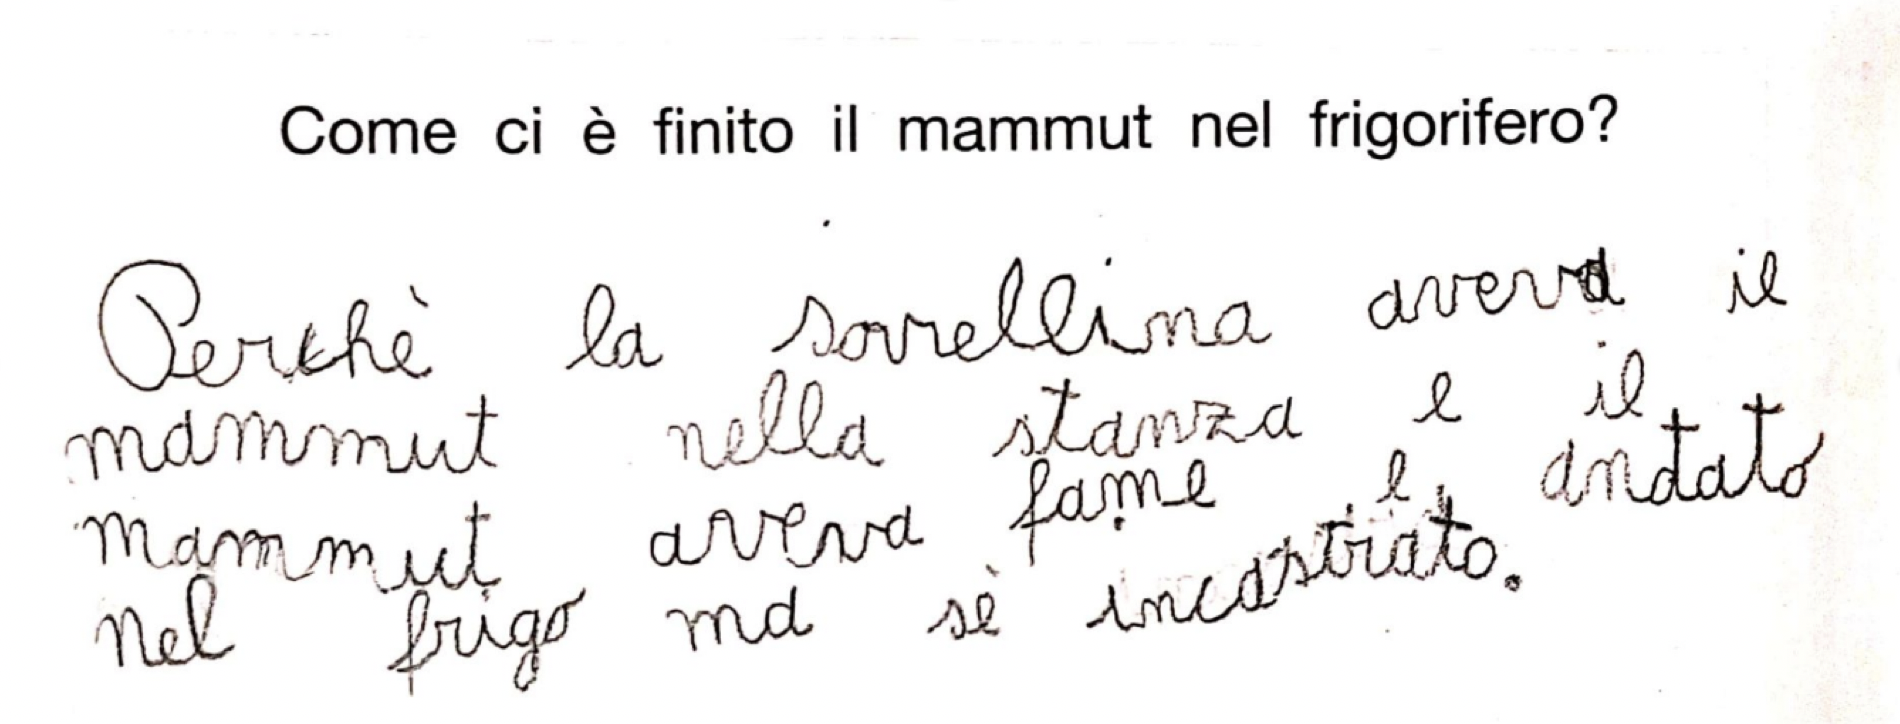 Come ci è finito il mammut nel frigorifero?
Perchè la sorrellina aveva il
mammut nella stanza e il
mammut aveva fame e andato
nel frigo ma sè incastrato.